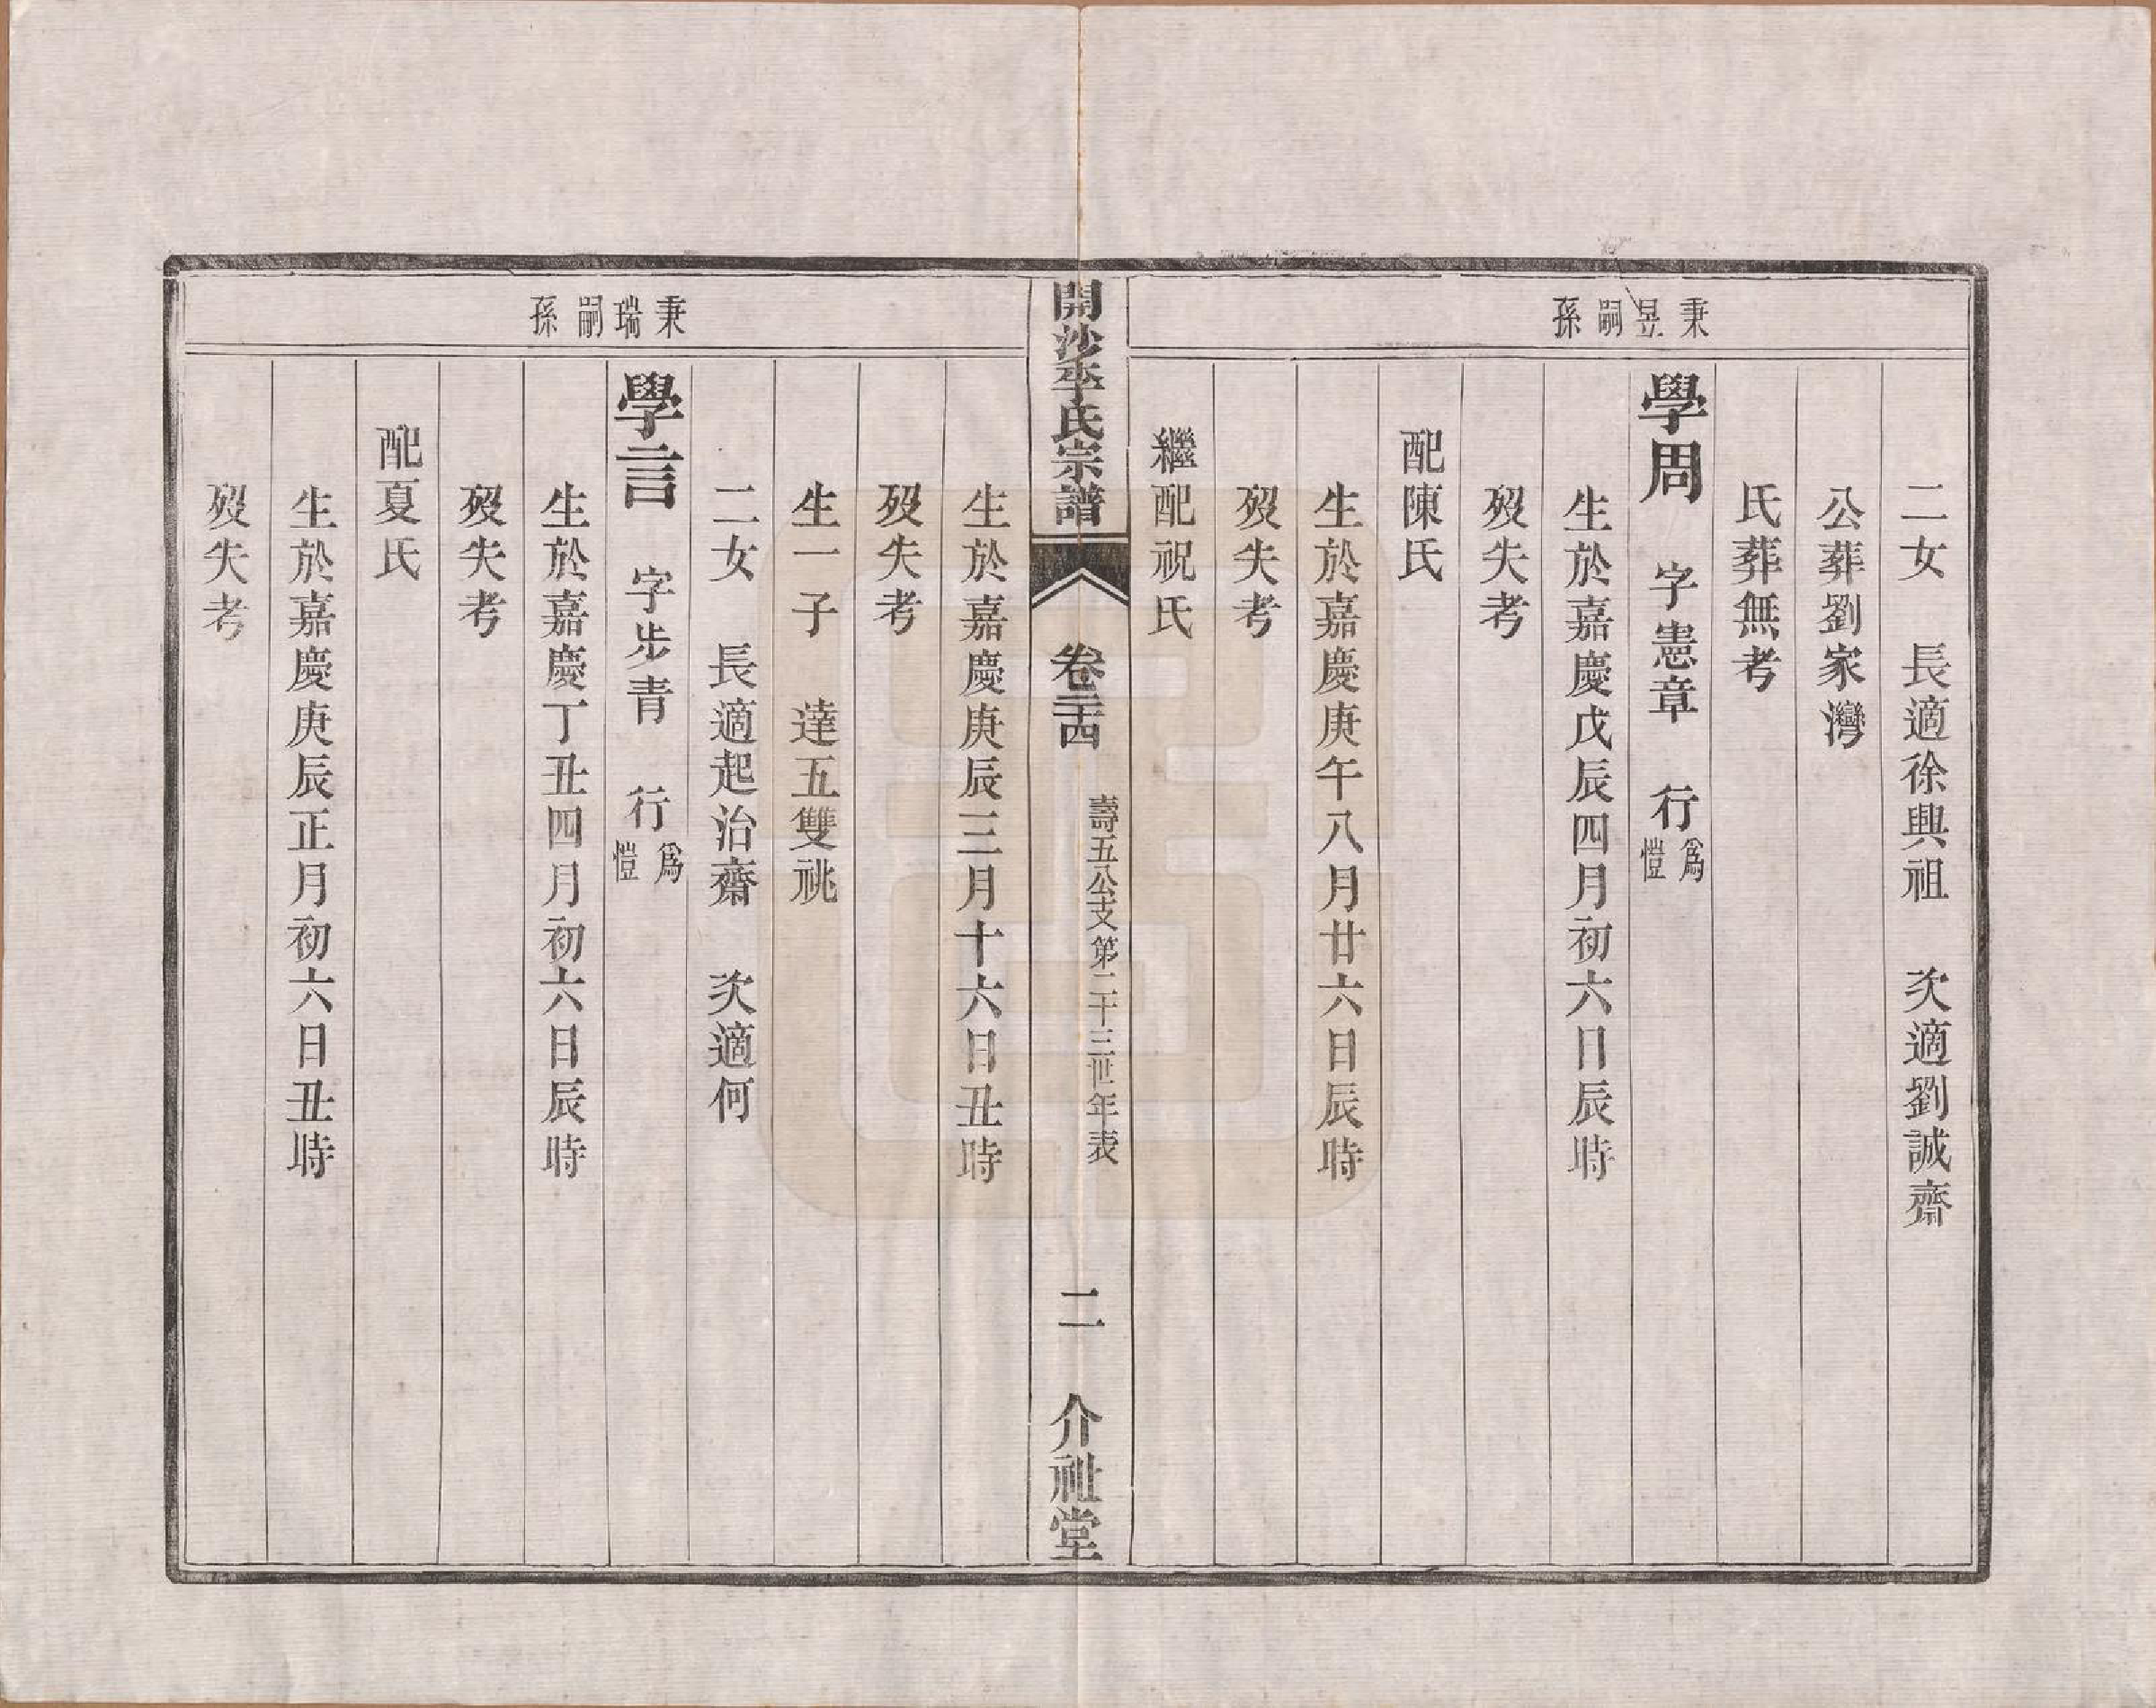 秉昱嗣孫
二女　長適徐興祖　次適劉誠齋
公葬劉家灣
氏葬無考
學周　字憲章　行爲愷
生於嘉慶戊辰四月初六日辰時
歿失考
配陳氏
生於嘉慶庚午八月廿六日辰時
歿失考
繼配祝氏
開沙李氏宗譜　卷二十四　壽五公支第二十三世年表　二　介祉堂
秉瑞嗣孫
生於嘉慶庚辰三月十六日丑時
歿失考
生一子　達五雙祧
二女　長適起治齋　次適何
學言　字步青　行爲愷
生於嘉慶丁丑四月初六日辰時
歿失考
配夏氏
生於嘉慶庚辰正月初六日丑時
歿失考